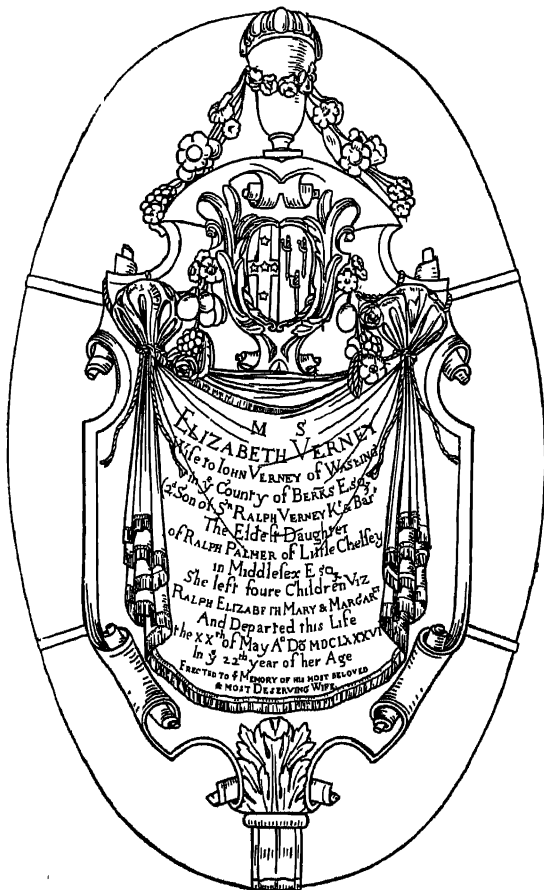 M S
ELIZABETH VERNEY
Wife to IOHN VERNEY of WASEING
in yͤ County of BERKS Esqꝫ
(2ᵈ Son of Sʳ RALPH VERNEY Kᵗ & Barᵗ
The Eldeſt Daughter
of RALPH PALMER of Little Chelſey
in Middleſex Eſqꝫ
She left foure Children Viz
RALPH ELIZABETH MARY & MARGARᵗ
And Departed this Life
the XXᵗʰ of May Aº Dō MDCLXXXVI
In yͤ 22ᵗʰ year of her Age
ERECTED TO yͤ MEMORY OF HIS MOST BELOVED
& MOST DESERVING WIFE